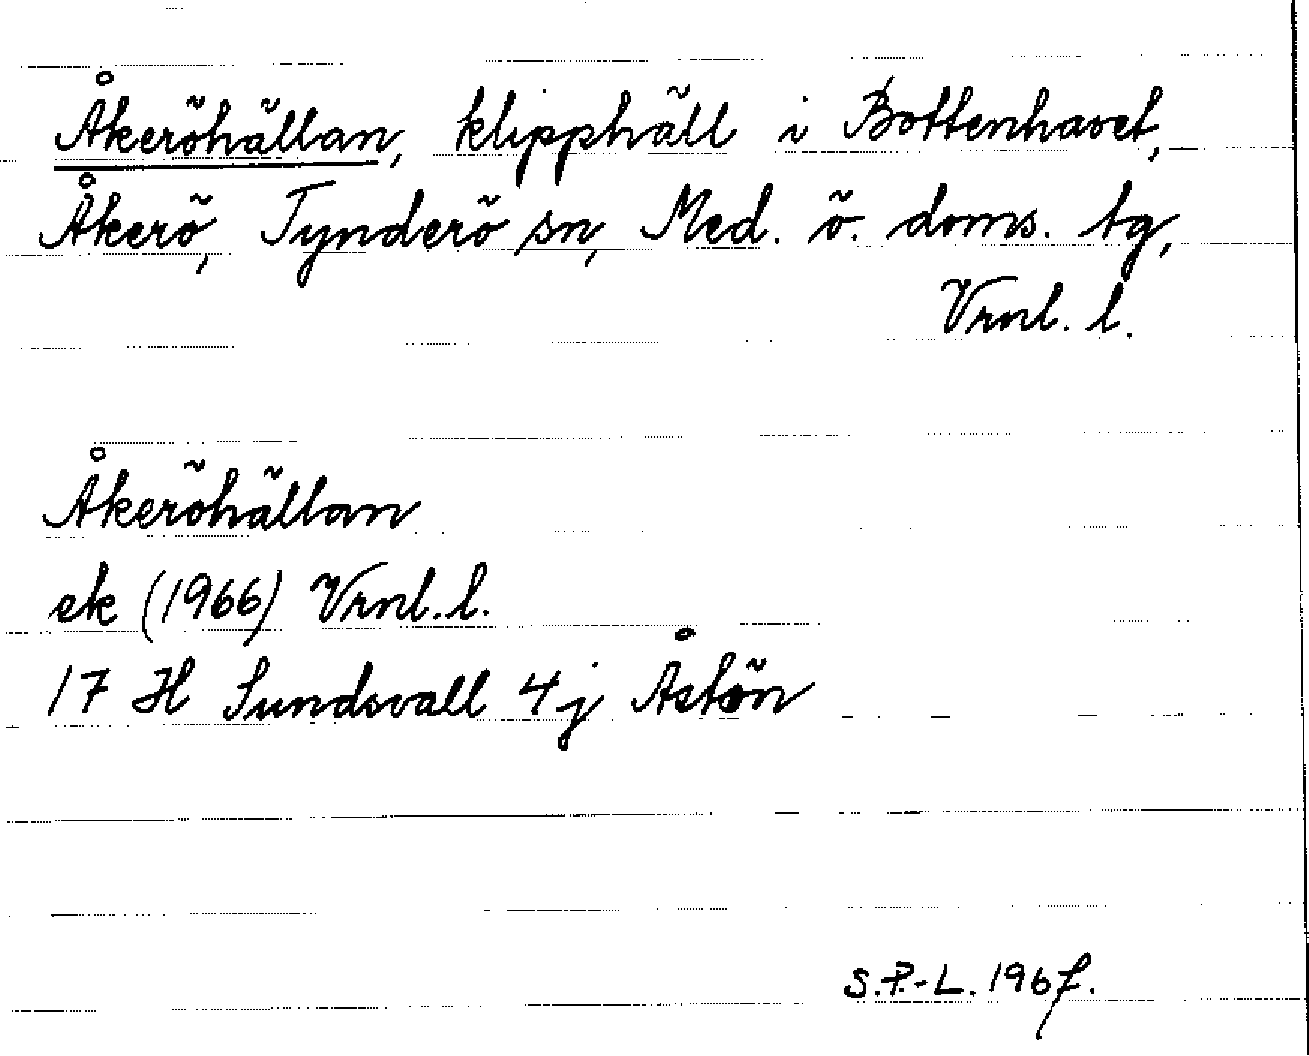 Åkeröhällan, klipphäll i Bottenhavet,
Åkerö, Tynderö sn, Med. ö. doms. tg,
Vrnl. l.
Åkeröhällan
ek (1966) Vrnl. l.
17 H Sundsvall 4j Åstön
S.P.-L. 1967.